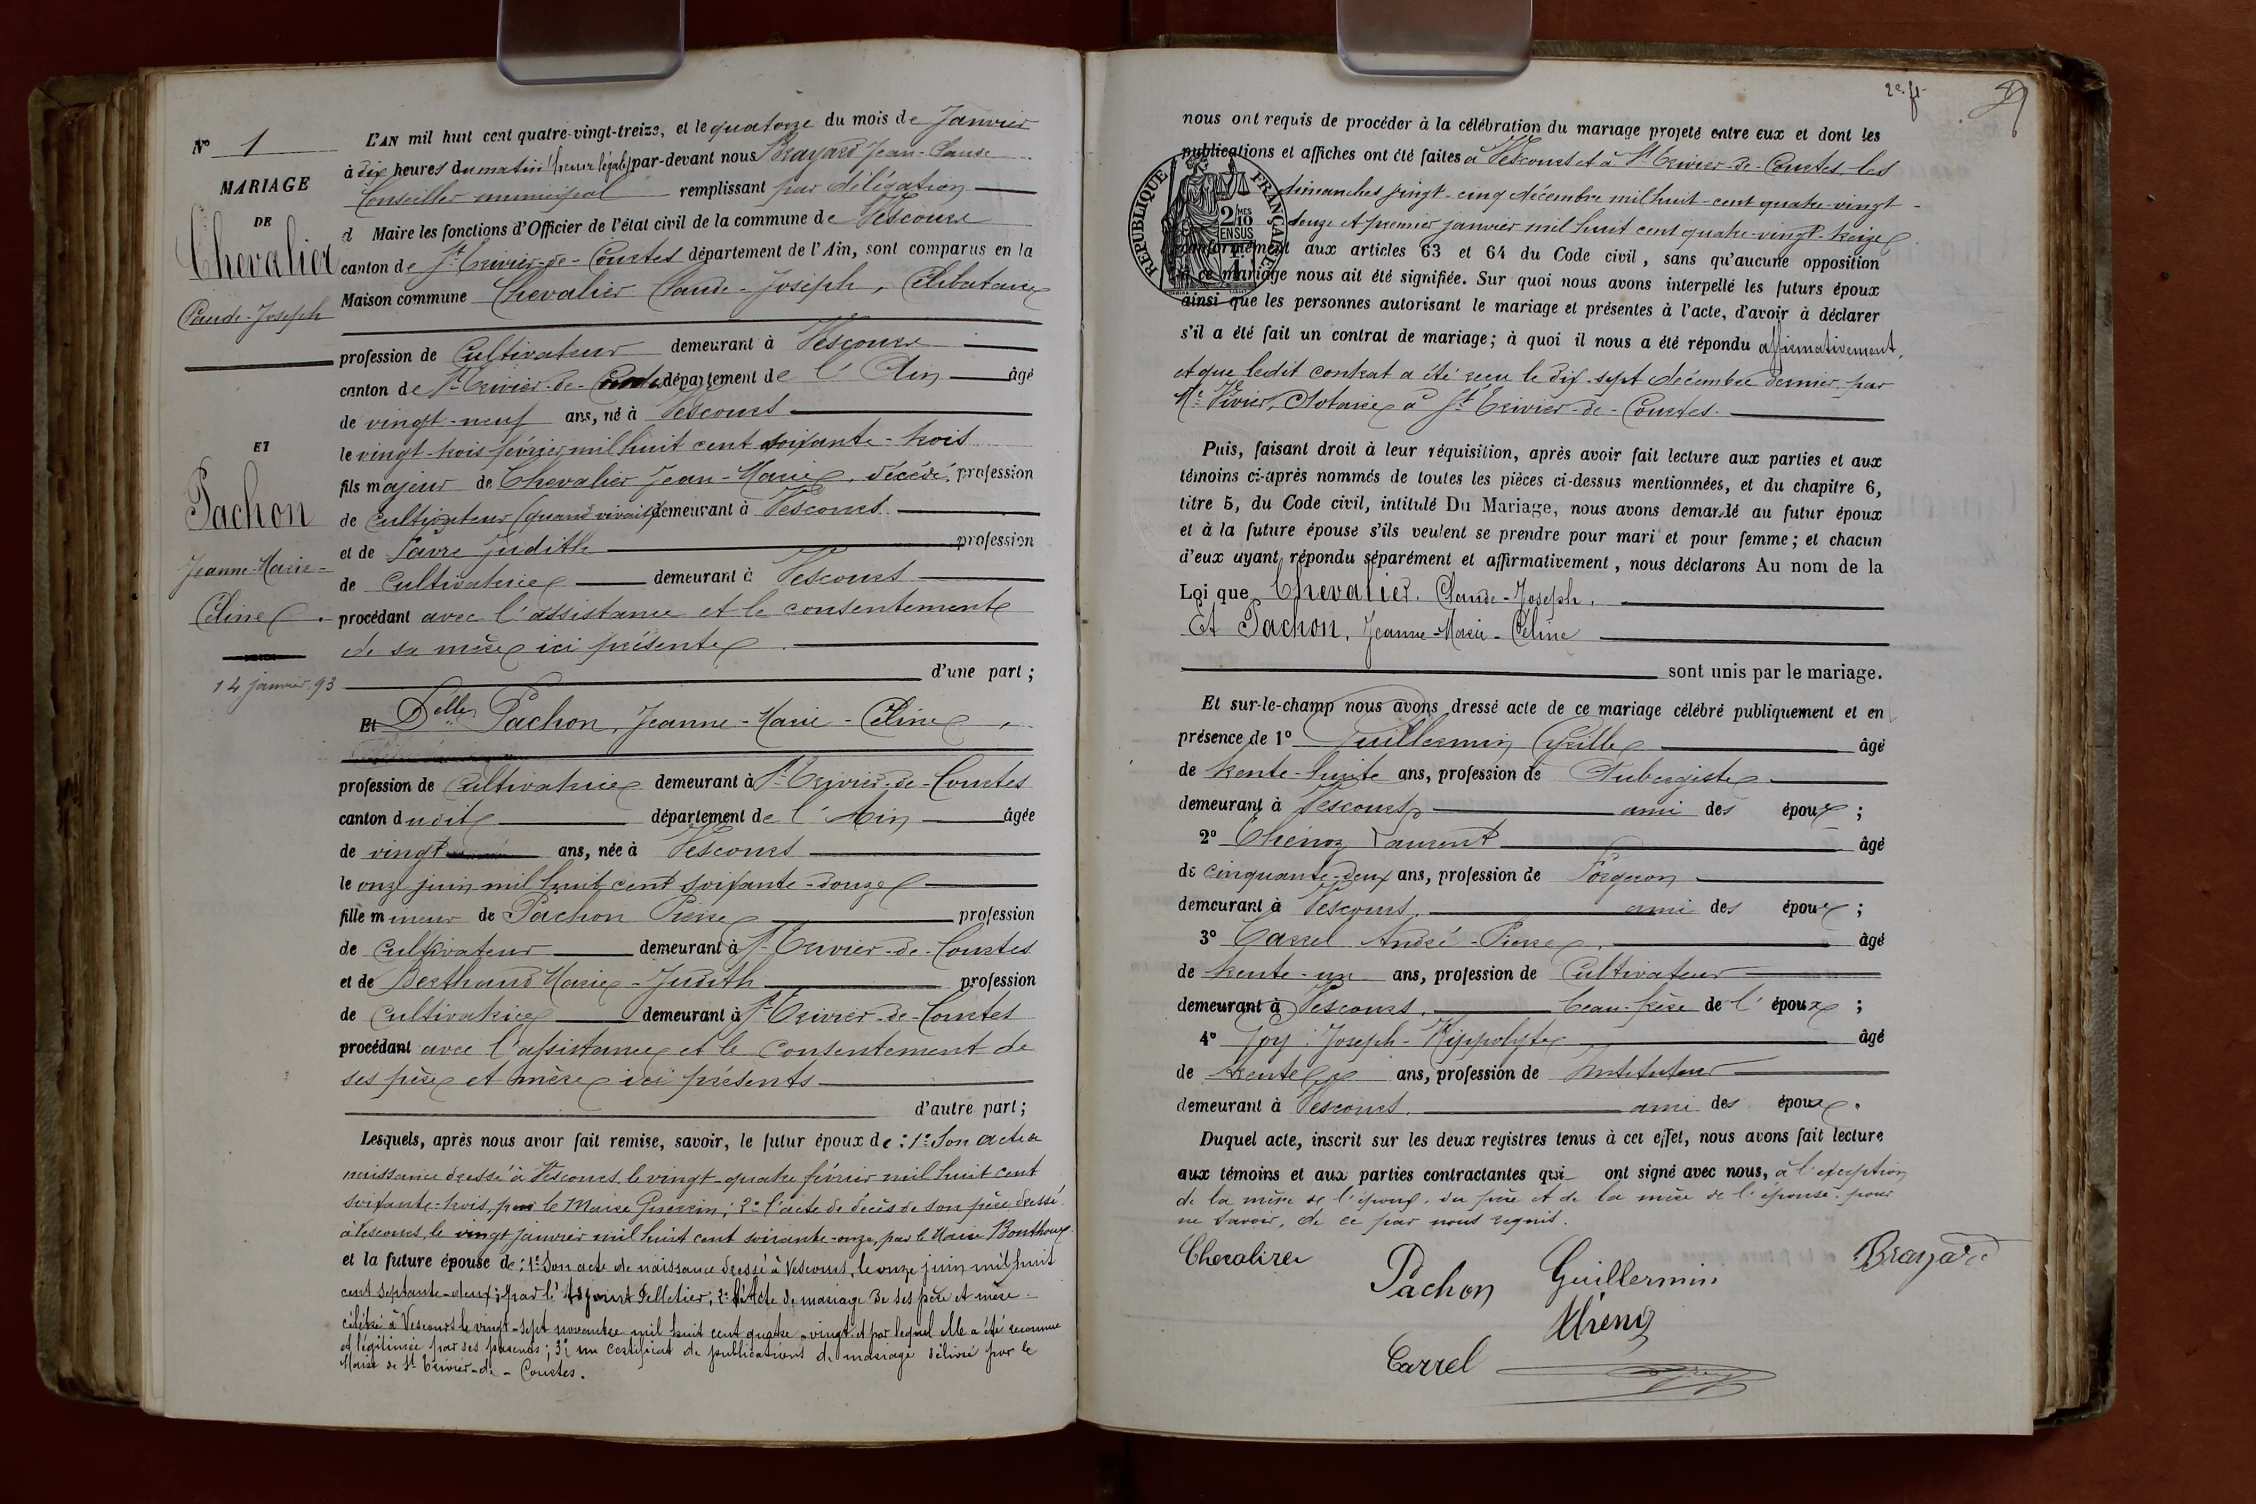 N° 1
MARIAGE
DE
Chevalier
Claude-Joseph
ET
Pachon
Jeanne-Marie-
Céline
14 janvier 93
L'AN mil huit cent quatre-vingt-treize, et le quatorze du mois de Janvier
à dix heures du matin (heure légale) par-devant nous Brayard Jean-Claude
Conseiller municipal remplissant par délégation
d Maire les fonctions d'Officier de l'état civil de la commune de Vescours
canton de St-Trivier-de-Courtes département de l'Ain, sont comparus en la
Maison commune Chevalier Claude-Joseph, Célibataire
profession de Cultivateur demeurant à Vescours
canton de St-Trivier-de-Courtes département de l'Ain âgé
de vingt-neuf ans, né à Vescours
le vingt-trois février mil huit cent soixante-trois
fils majeur de Chevalier Jean-Marie, décédé, profession
de cultivateur (quand vivait) demeurant à Vescours
et de Favre Judith profession
de Cultivatrice demeurant à Vescours
procédant avec l'assistance et le consentement
de sa mère ici présente
d'une part;
Et Delle Pachon, Jeanne-Marie-Céline,
profession de Cultivatrice demeurant à St-Trivier-de-Courtes
canton dudit département de l'Ain âgée
de vingt ans, née à Vescours
le onze juin mil huit cent soixante-douze
fille mineure de Pachon Pierre profession
de cultivateur demeurant à St-Trivier-de-Courtes
et de Berthaud Marie-Judith profession
de Cultivatrice demeurant à St-Trivier-de-Courtes
procédant avec l'assistance et le consentement de
ses père et mère ici présents
d'autre part;
Lesquels, après nous avoir fait remise, savoir, le futur époux de : 1° Son acte de
naissance dressé à Vescours, le vingt-quatre février mil huit cent
soixante-trois, par le Maire Guerrin ; 2° l'acte de décès de son père dressé
à Vescours, le vingt janvier mil huit cent soixante-onze, par le Maire Bonthoux
et la future épouse de : 1° Son acte de naissance dressé à Vescours, le onze juin mil huit
cent septante-deux, par l'adjoint Pelletier ; 2° l'Acte de mariage de ses père et mère
célébré à Vescours le vingt-sept novembre mil huit cent quatre-vingt et par lequel elle a été reconnue
et légitimée par ses parents ; 3° un certificat de publications de mariage délivré par le
Maire de St-Trivier-de-Courtes.
nous ont requis de procéder à la célébration du mariage projeté entre eux et dont les
publications et affiches ont été faites à Vescours et à St-Trivier-de-Courtes, les
dimanches vingt-cinq décembre mil huit-cent quatre-vingt-
douze et premier janvier mil huit cent quatre-vingt-treize
conformément aux articles 63 et 64 du Code civil, sans qu'aucune opposition
à ce mariage nous ait été signifiée. Sur quoi nous avons interpellé les futurs époux
ainsi que les personnes autorisant le mariage et présentes à l'acte, d'avoir à déclarer
s'il a été fait un contrat de mariage; à quoi il nous a été répondu affirmativement,
et que ledit contrat a été reçu le dix-sept décembre dernier par
Me Vivier, Notaire à St-Trivier-de-Courtes.
RÉPUBLIQUE FRANÇAISE
2/10 MES
EN SUS
Puis, faisant droit à leur réquisition, après avoir fait lecture aux parties et aux
témoins ci-après nommés de toutes les pièces ci-dessus mentionnées, et du chapitre 6,
titre 5, du Code civil, intitulé Du Mariage, nous avons demandé au futur époux
et à la future épouse s'ils veulent se prendre pour mari et pour femme; et chacun
d'eux ayant répondu séparément et affirmativement, nous déclarons Au nom de la
Loi que Chevalier, Claude-Joseph,
Et Pachon, Jeanne-Marie-Céline
sont unis par le mariage.
Et sur-le-champ nous avons dressé acte de ce mariage célébré publiquement et en
présence de 1° Guillermin Cyrille âgé
de trente-huit ans, profession de Aubergiste
demeurant à Vescours ami des époux ;
2° Thénoz Laurent âgé
de cinquante-deux ans, profession de Forgeron
demeurant à Vescours, ami des époux ;
3° Carrel André-Pierre, âgé
de trente-un ans, profession de Cultivateur
demeurant à Vescours, beau-frère de l'époux ;
4° Joy Joseph-Hippolyte âgé
de trente ans, profession de Instituteur
demeurant à Vescours, ami des époux.
Duquel acte, inscrit sur les deux registres tenus à cet effet, nous avons fait lecture
aux témoins et aux parties contractantes qui ont signé avec nous, à l'exception
de la mère de l'époux, du père et de la mère de l'épouse, pour
ne savoir, de ce par nous requis.
Chevalier
Pachon
Guillermin
Brayard
Thénoz
Carrel